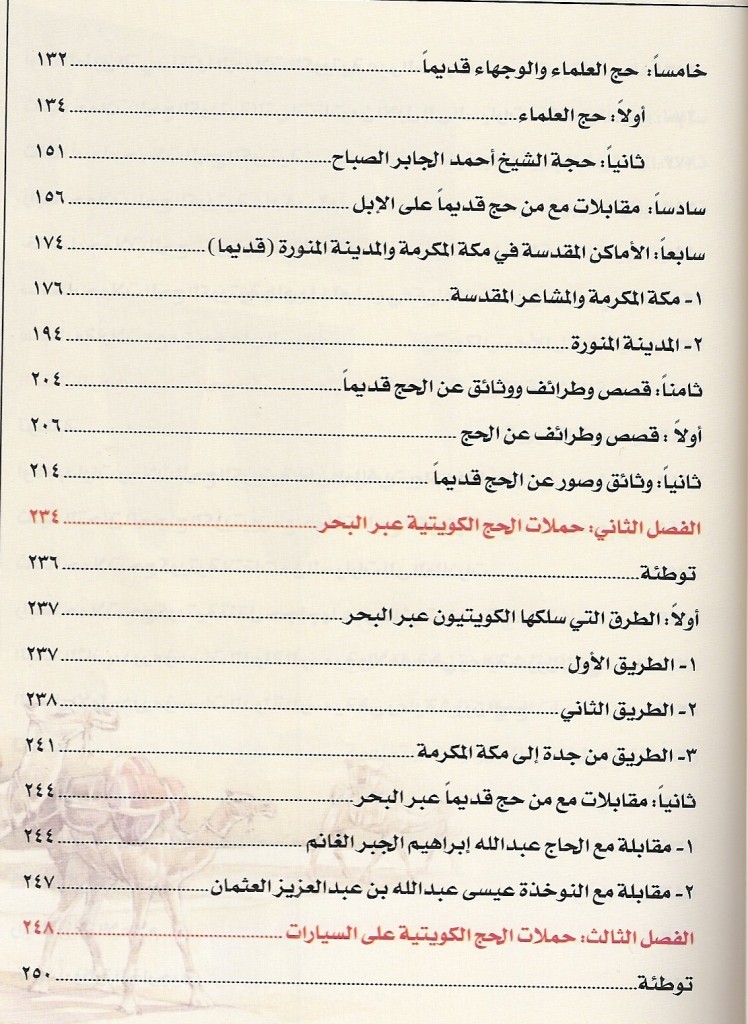 خامساً: حج العلماء والوجهاء قديماً ١٣٢
أولاً: حج العلماء ١٣٤
ثانياً: حجة الشيخ أحمد الجابر الصباح ١٥١
سادساً: مقابلات مع من حج قديماً على الإبل ١٥٦
سابعاً: الأماكن المقدسة في مكة المكرمة والمدينة المنورة (قديما) ١٧٤
١- مكة المكرمة والمشاعر المقدسة ١٧٦
٢- المدينة المنورة ١٩٤
ثامناً: قصص وطرائف ووثائق عن الحج قديماً ٢٠٤
أولاً : قصص وطرائف عن الحج ٢٠٦
ثانياً: وثائق وصور عن الحج قديماً ٢١٤
الفصل الثاني: حملات الحج الكويتية عبر البحر ٢٣٤
توطئة ٢٣٦
أولاً: الطرق التي سلكها الكويتيون عبر البحر ٢٣٧
١- الطريق الأول ٢٣٧
٢- الطريق الثاني ٢٣٨
٣- الطريق من جدة إلى مكة المكرمة ٢٤١
ثانياً: مقابلات مع من حج قديماً عبر البحر ٢٤٤
١- مقابلة مع الحاج عبدالله إبراهيم الجبر الغانم ٢٤٤
٢- مقابلة مع النوخذة عيسى عبدالله بن عبدالعزيز العثمان ٢٤٧
الفصل الثالث: حملات الحج الكويتية على السيارات ٢٤٨
توطئة ٢٥٠